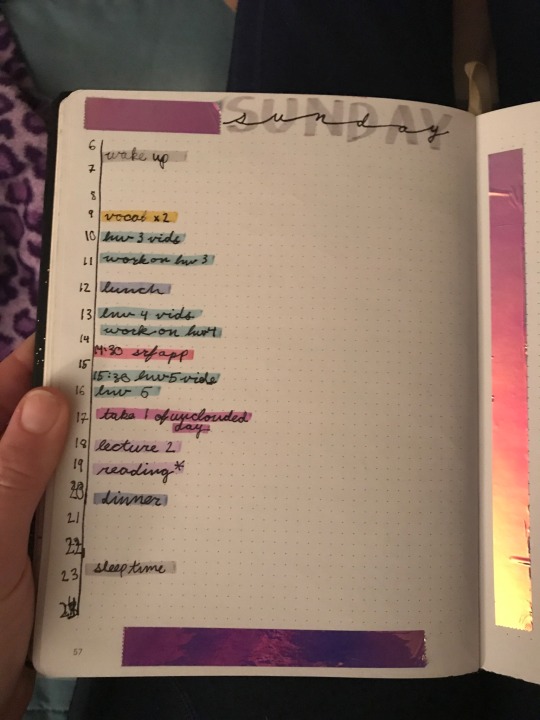 SUNDAY
sunday
6
wake up
7
8
9 vocal x2
10 hw 3 vids
11 work on hw 3
12 lunch
13 hw 4 vids
14 work on hw4
14:30 srf app
15
15:30 hw5 vids
16 hw 5
17 take 1 of unclouded
day
18 lecture 2
19 reading*
20 dinner
21
22
23 sleep time
24
57